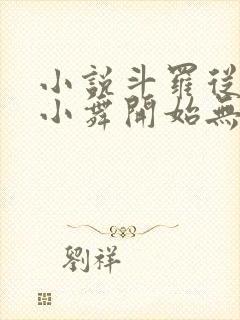 小說斗羅從
小舞開始無
劉祥